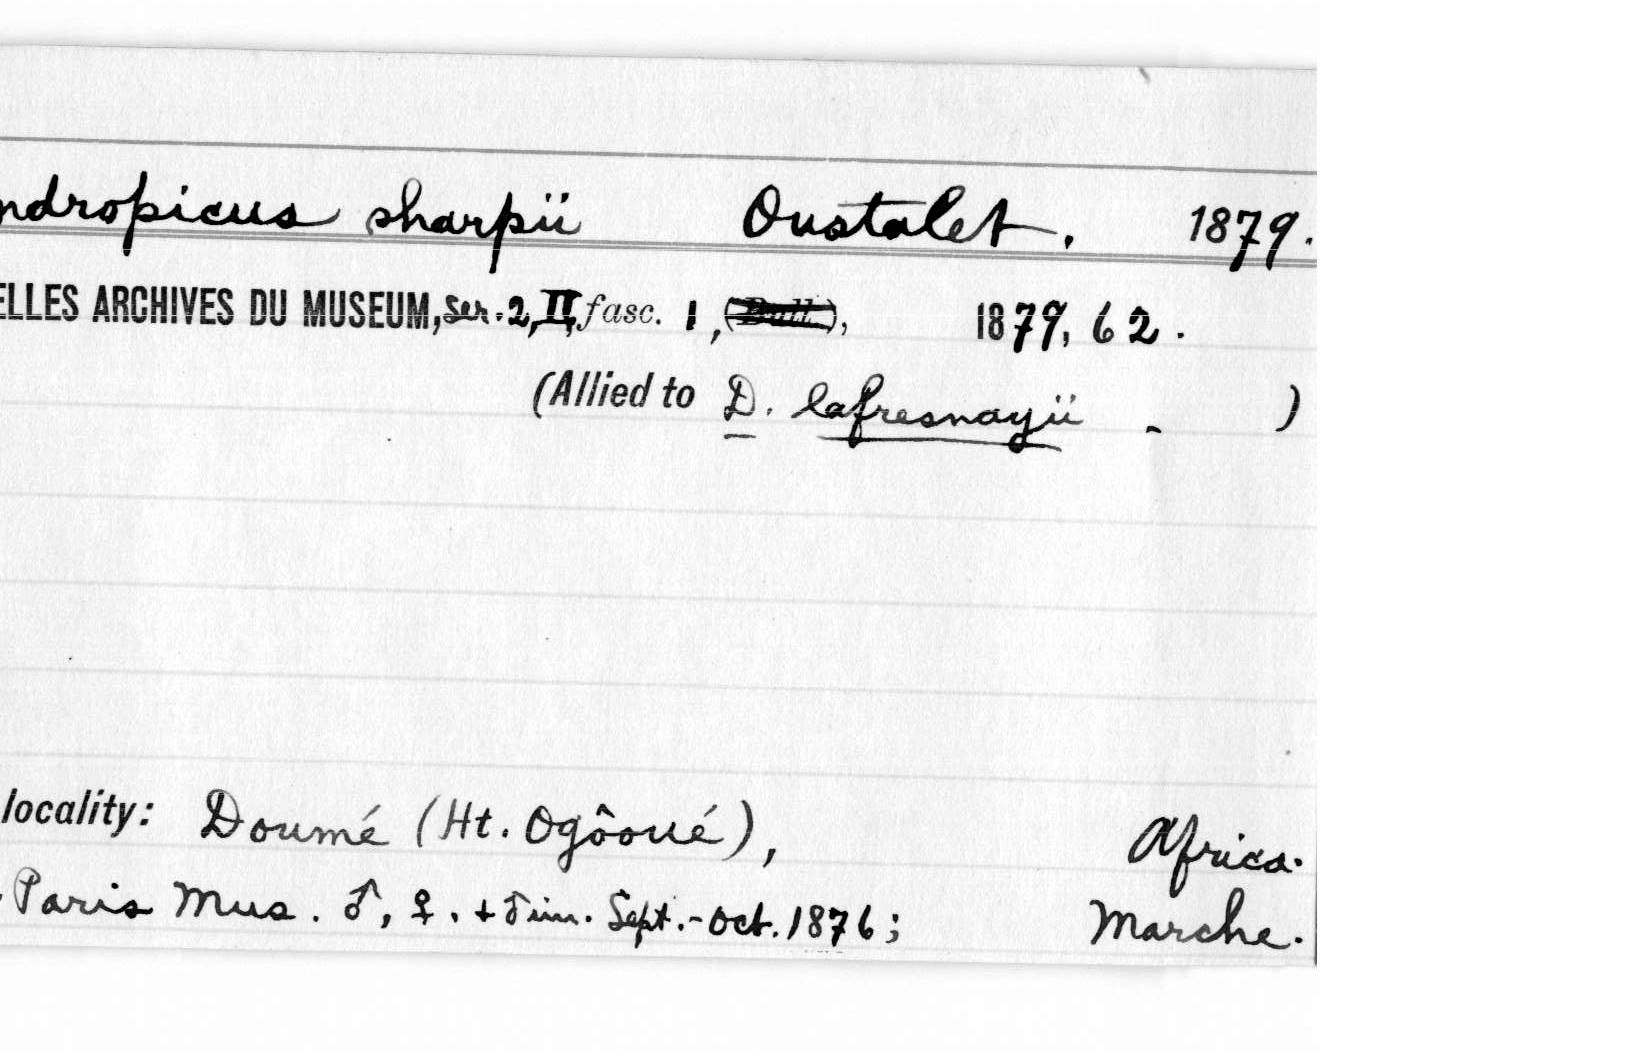 ndropicus sharpii Oustalet. 1879.
ELLES ARCHIVES DU MUSEUM, Ser. 2, II, fasc. 1, (Bull.), 1879, 62.
(Allied to D. lafresnayii - )
locality: Doumé (Ht. Ogôoué), Africa.
Paris Mus. ♂, ♀. + ♂ im. Sept.-Oct. 1876; Marche.